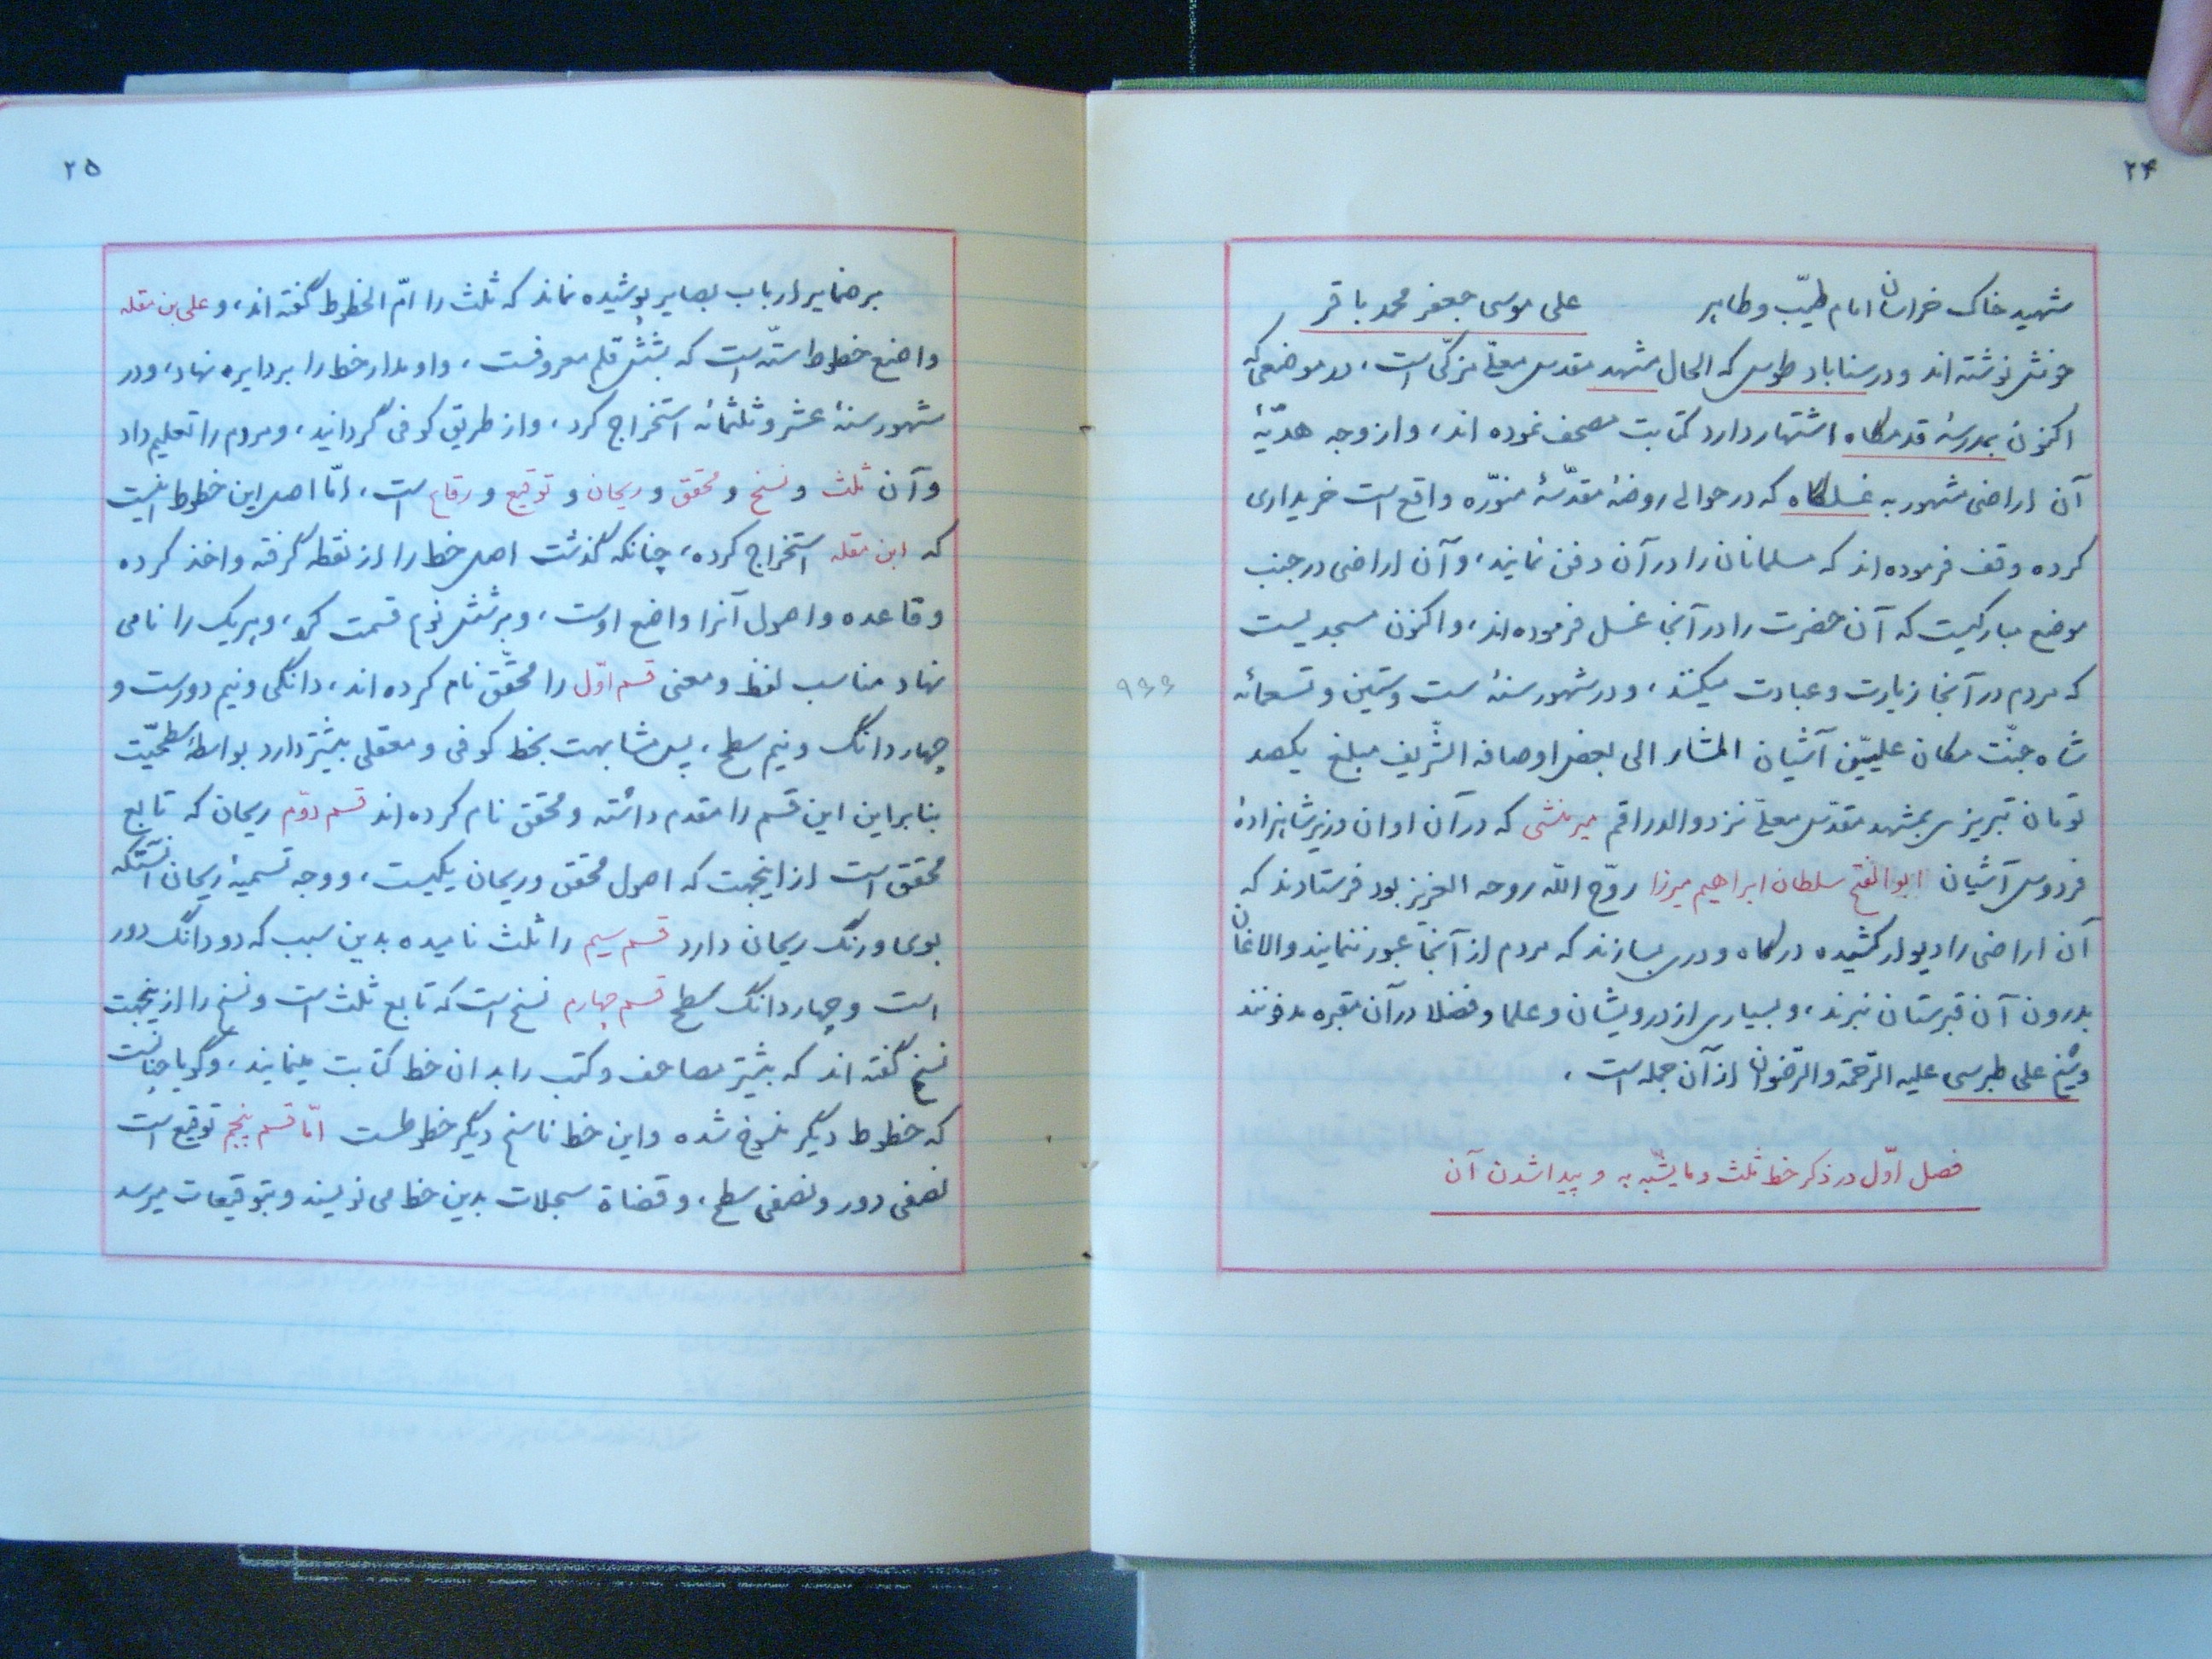 ۲۴
شهید خاک خراسان امام طیّب و طاهر علی موسی جعفر محمد باقر
خونش نوشته اند و در سناباد طوس که الحال مشهد مقدس معلّی مزکّی است، در موضعی که
اکنون بمدرسهٔ قدمگاه اشتهار دارد کتابت مصحف نموده اند، و از وجه هدیّهٔ
آن اراضی مشهور به غسلگاه که در حوالی روضهٔ مقدّسهٔ منوّره واقع است خریداری
کرده وقف فرموده اند که مسلمانان را در آن دفن نمایند، و آن اراضی در جنب
موضع مبارکیست که آن حضرت را در آنجا غسل فرموده اند، و اکنون مسجدیست
که مردم در آنجا زیارت و عبادت میکنند، و در شهور سنهٔ ست و ستین و تسعمائه
۹۶۶
شاه جنّت مکان علیین آشیان المشار الی بعض اوصافه الشّریف مبلغ یکصد
تومان تبریزی بمشهد مقدس معلّی نزد والد راقم میر منشی که در آن اوان وزیر شاهزادهٔ
فردوس آشیان ابو الفتح سلطان ابراهیم میرزا روّح اللّه روحه العزیز بود فرستادند که
آن اراضی را دیوار کشیده درگاه و دری بسازند که مردم از آنجا عبور ننمایند و الاغان
بدرون آن قبرستان نبرند، و بسیاری از درویشان و علما و فضلا در آن مقبره مدفونند
و شیخ علی طبرسی علیه الرّحمة والرّضوان از آن جمله است.
فصل اوّل در ذکر خط ثلث و ما یشبّه به و پیدا شدن آن
۲۵
بر ضمایر ارباب بصایر پوشیده نماند که ثلث را امّ الخطوط گفته اند، و علی بن مقله
واضع خطوط ستّه است که بشش قلم معروفست، و او مدار خط را بر دایره نهاد، و در
شهور سنهٔ عشر و ثلثمائه استخراج کرد، و از طریق کوفی گردانید، و مردم را تعلیم داد
و آن ثلث و نسخ و محقق و ریحان و توقیع و رقاع است، امّا اصل این خطوط اینست
که ابن مقله استخراج کرده، چنانکه گذشت اصل خط را از نقطه گرفته و اخذ کرده
و قاعده و اصول آنرا واضع اوست، و بر شش نوع قسمت کرد، و هریک را نامی
نهاد مناسب لفظ و معنی قسم اوّل را محقّق نام کرده اند، دانگی و نیم دورست و
چهار دانگ و نیم سطح، پس مشابهت بخط کوفی و معقلی بیشتر دارد بواسطهٔ سطحیّت
بنابراین این قسم را مقدم داشته و محقق نام کرده اند قسم دوّم ریحان که تابع
محقق است از اینجهت که اصول محقق و ریحان یکیست، و وجه تسمیهٔ ریحان آنستکه
بوی و رنگ ریحان دارد قسم سیم را ثلث نامیده بدین سبب که دو دانگ دور
است و چهار دانگ سطح قسم چهارم نسخ است که تابع ثلث است و نسخ را ازینجهت
نسخ گفته اند که بیشتر مصاحف و کتب را بدان خط کتابت مینمایند، و گویا چنانست
که خطوط دیگر منسوخ شده و این خط ناسخ دیگر خطوطست امّا قسم پنجم توقیع است
نصفی دور و نصفی سطح، و قضاة سجلات بدین خط می نویسند و بتوقیعات میرسد